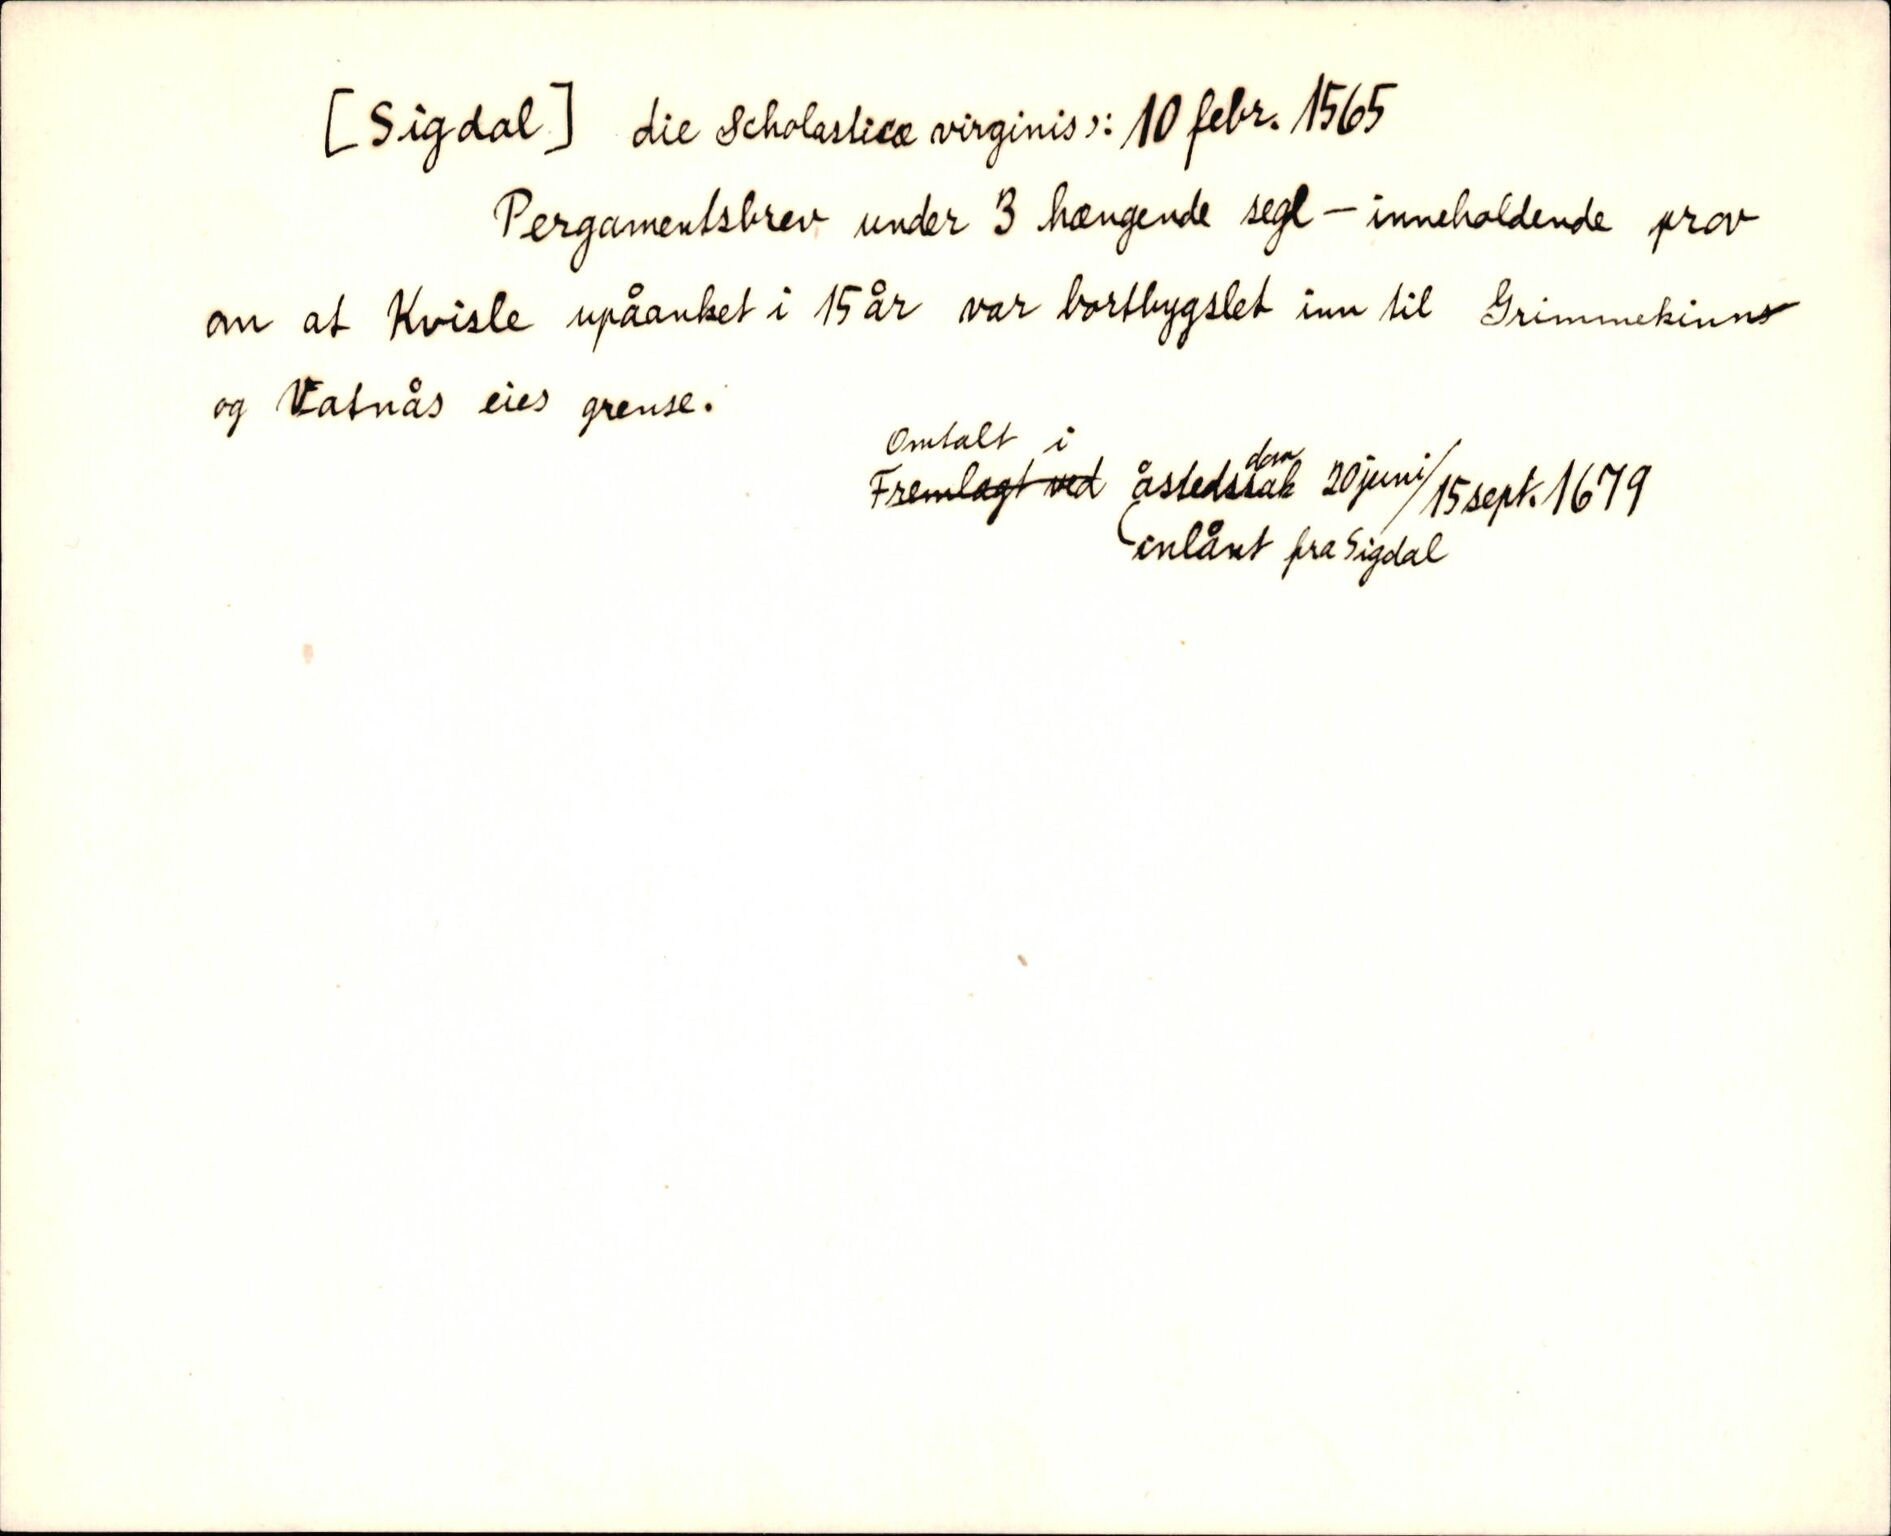 [Sigdal] die Scholasticæ virginis ɔ: 10 febr. 1565
Pergamentsbrev under 3 hængende segl — inneholdende prov
om at Kvisle upåanket i 15 år var bortbygslet inn til Grimmekinns
og Vatnås eies grense.
Omtalt i
Fremlagt ved åstedssak dom 20 juni/15 sept. 1679
innlånt fra Sigdal